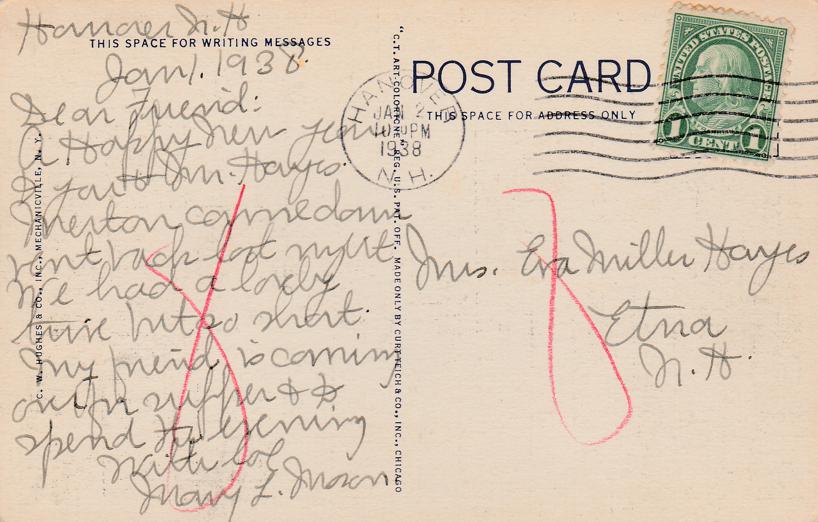 Hanover N.H
THIS SPACE FOR WRITING MESSAGES
Jan 1. 1938.
Dear Friend:
A Happy New Year
to you H.M. Hayes.
Merton came down
went back last night
We had a lovely
time but so short.
My friend is coming
over for supper & to
spend the evening
With
Mary L. Moson
C. W. HUGHES & CO., INC., MECHANICVILLE, N. Y.
"C.T. ART-COLORTONE" REG. U.S. PAT. OFF. MADE ONLY BY CURT TEICH & CO., INC., CHICAGO
POST CARD
THIS SPACE FOR ADDRESS ONLY
HANOVER
JAN 2
10 PM
1938
N.H.
UNITED STATES POSTAGE
1 CENT 1
Mrs. Eva Miller Hayes
Etna
N.H.